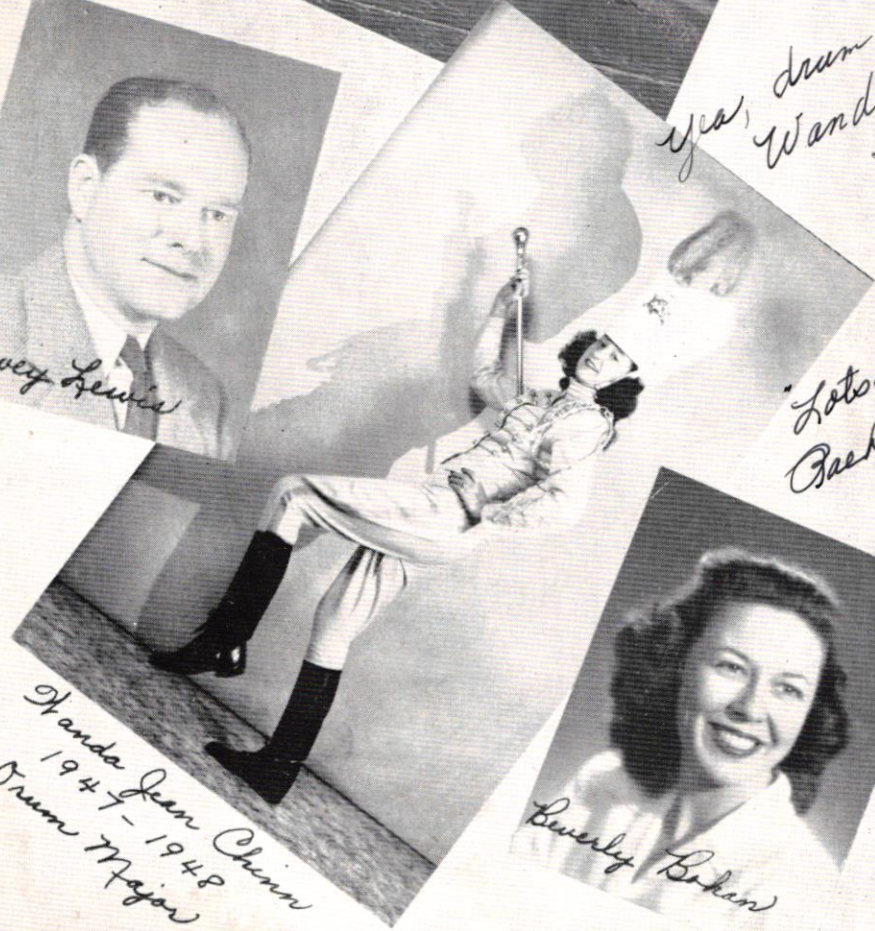 Yea, drum
Wand
vey Lewis
"Lots
Back
Wanda Jean Chinn
1947-1948
Drum Major
Beverly Bohan